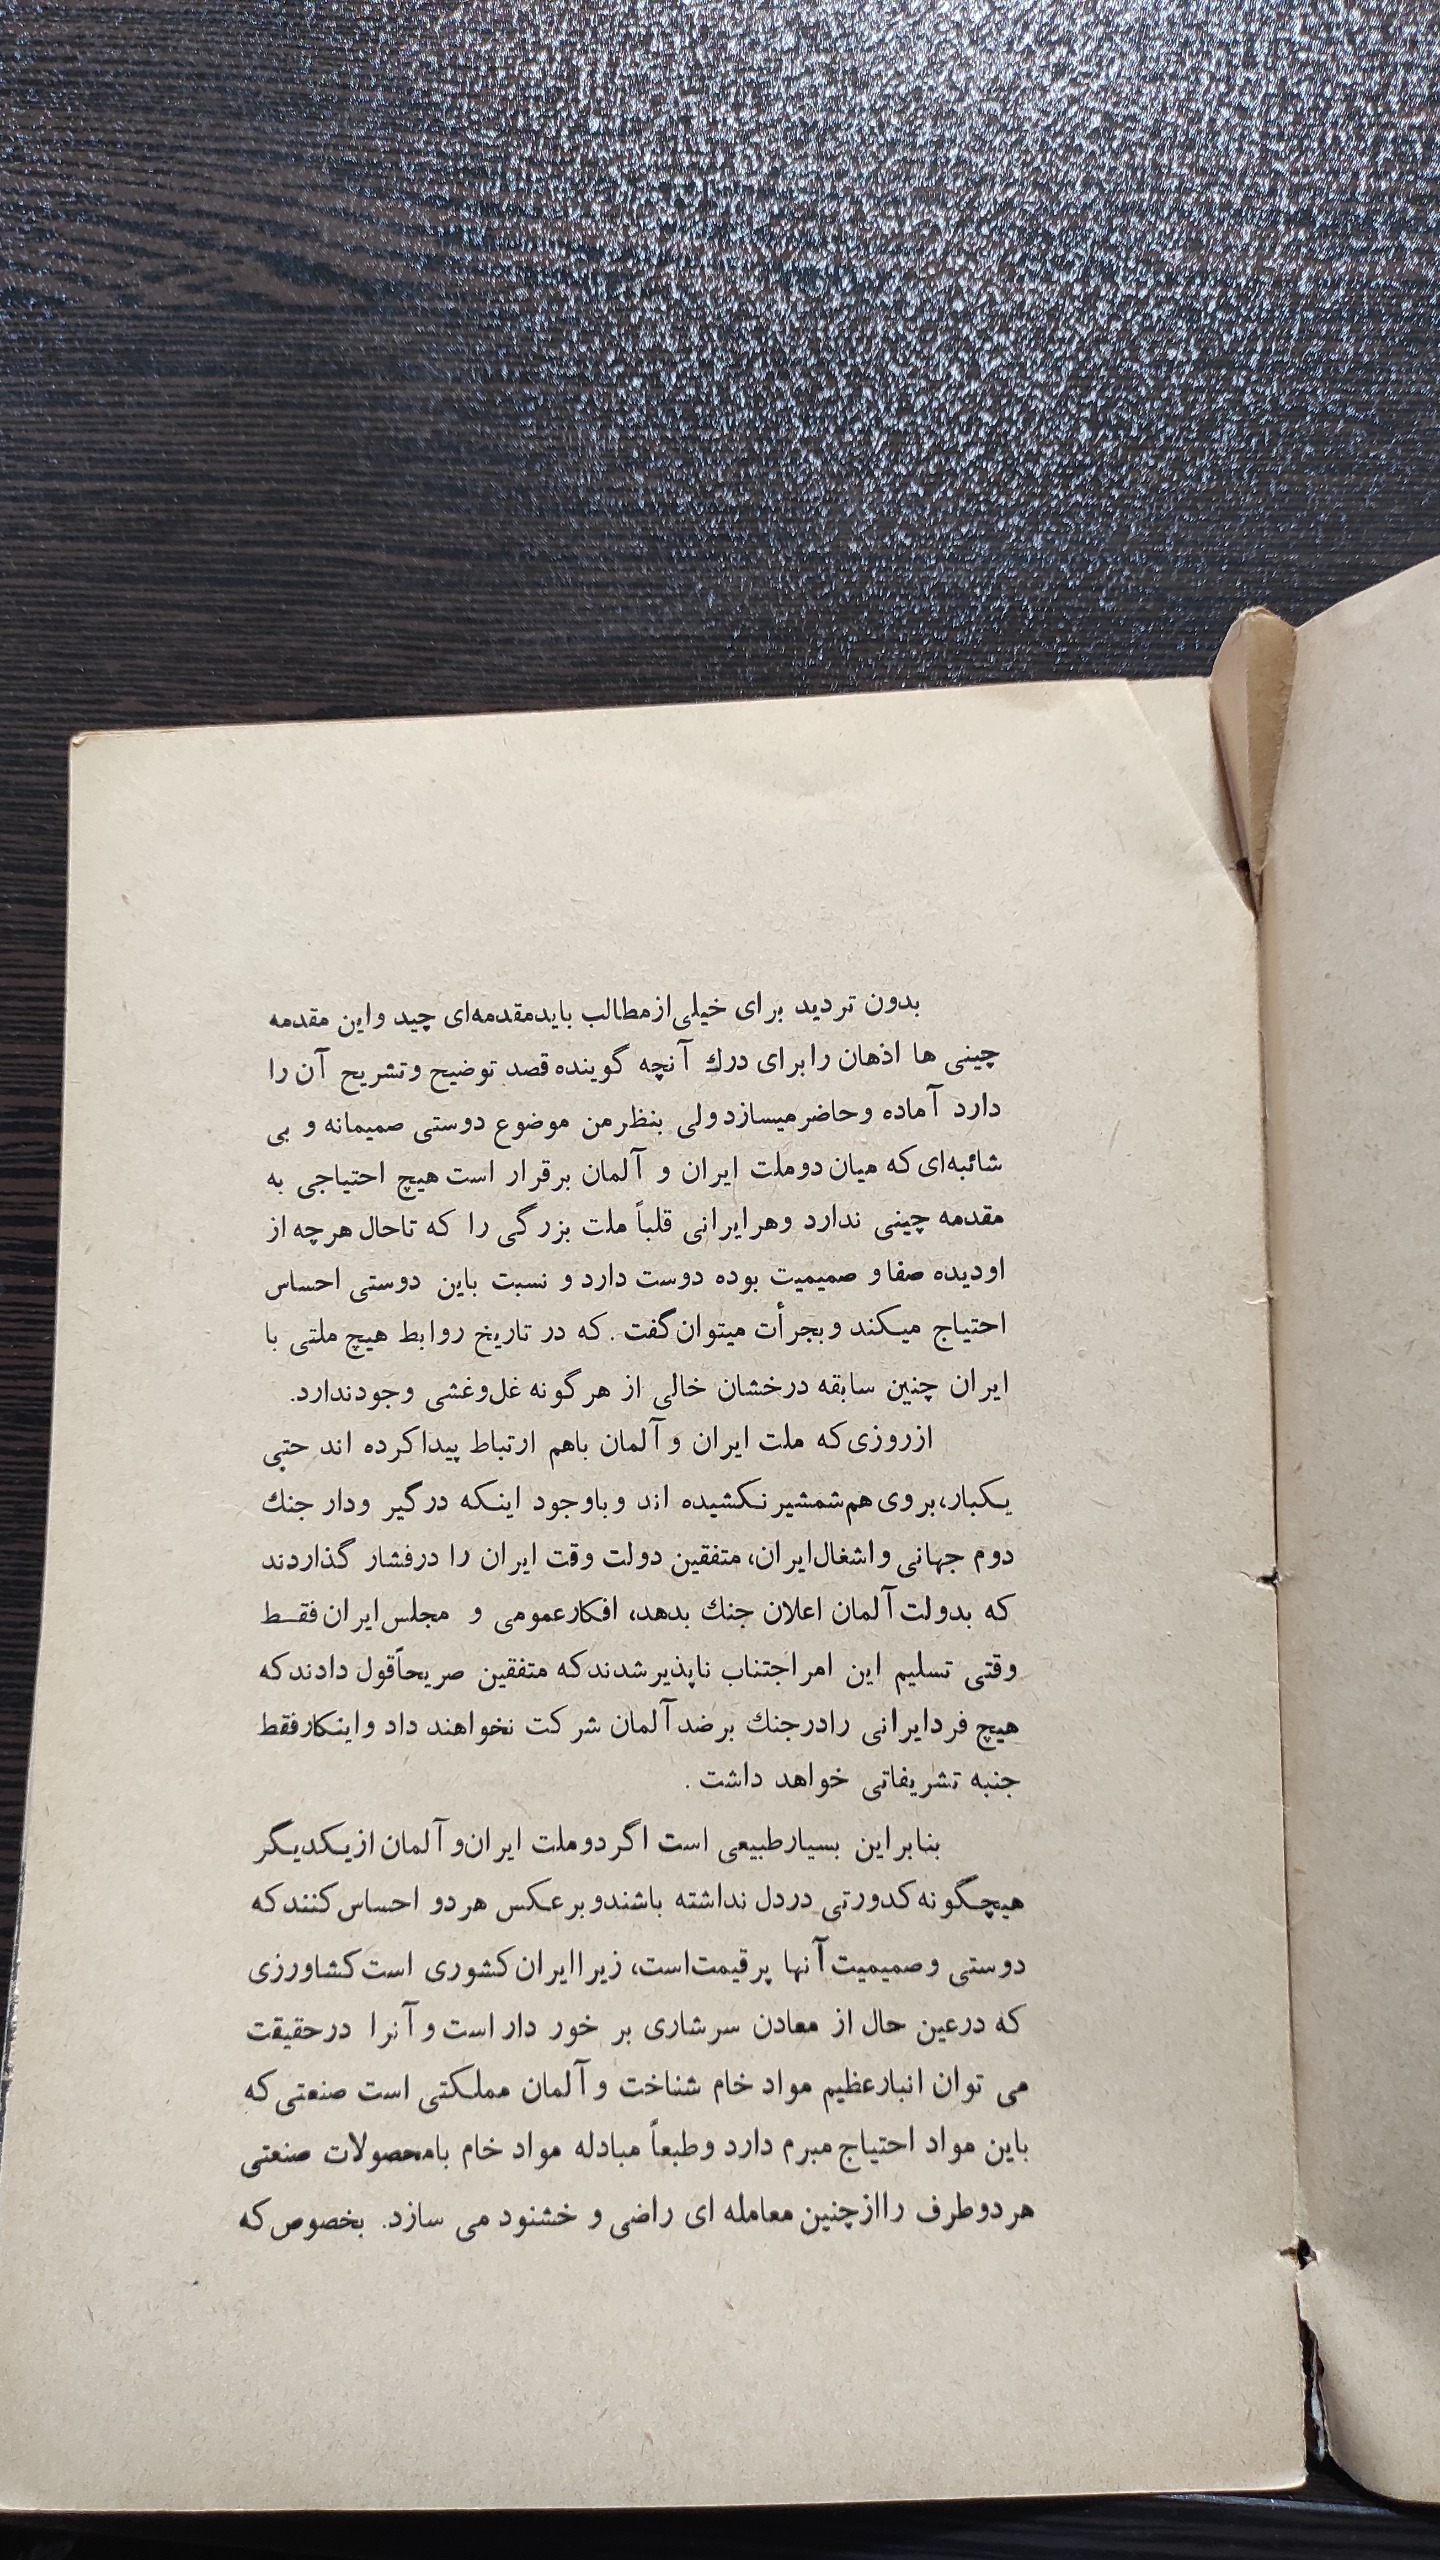 بدون تردید برای خیلی از مطالب باید مقدمه‌ای چید و این مقدمه
چینی ها اذهان را برای درك آنچه گوینده قصد توضیح و تشریح آن را
دارد آماده و حاضر میسازد ولی بنظر من موضوع دوستی صمیمانه و بی
شائبه‌ای که میان دو ملت ایران و آلمان برقرار است هیچ احتیاجی به
مقدمه چینی ندارد و هر ایرانی قلباً ملت بزرگی را که تا حال هر چه از
او دیده صفا و صمیمیت بوده دوست دارد و نسبت باین دوستی احساس
احتیاج میکند و بجرأت میتوان گفت . که در تاریخ روابط هیچ ملتی با
ایران چنین سابقه درخشان خالی از هر گونه غل و غشی وجود ندارد.
از روزی که ملت ایران و آلمان باهم ارتباط پیدا کرده اند حتی
یکبار، بروی هم شمشیر نکشیده اند و باوجود اینکه در گیر و دار جنك
دوم جهانی و اشغال ایران، متفقین دولت وقت ایران را در فشار گذاردند
که بدولت آلمان اعلان جنك بدهد، افکار عمومی و مجلس ایران فقط
وقتی تسلیم این امر اجتناب ناپذیر شدند که متفقین صریحاً قول دادند که
هیچ فرد ایرانی را در جنك بر ضد آلمان شرکت نخواهند داد و اینکار فقط
جنبه تشریفاتی خواهد داشت .
بنابراین بسیار طبیعی است اگر دو ملت ایران و آلمان از یکدیگر
هیچگونه کدورتی در دل نداشته باشند و بر عکس هر دو احساس کنند که
دوستی و صمیمیت آنها پر قیمت است، زیرا ایران کشوری است کشاورزی
که در عین حال از معادن سرشاری بر خور دار است و آنرا در حقیقت
می توان انبار عظیم مواد خام شناخت و آلمان مملکتی است صنعتی که
باین مواد احتیاج مبرم دارد و طبعاً مبادله مواد خام با محصولات صنعتی
هر دو طرف را از چنین معامله ای راضی و خشنود می سازد. بخصوص که